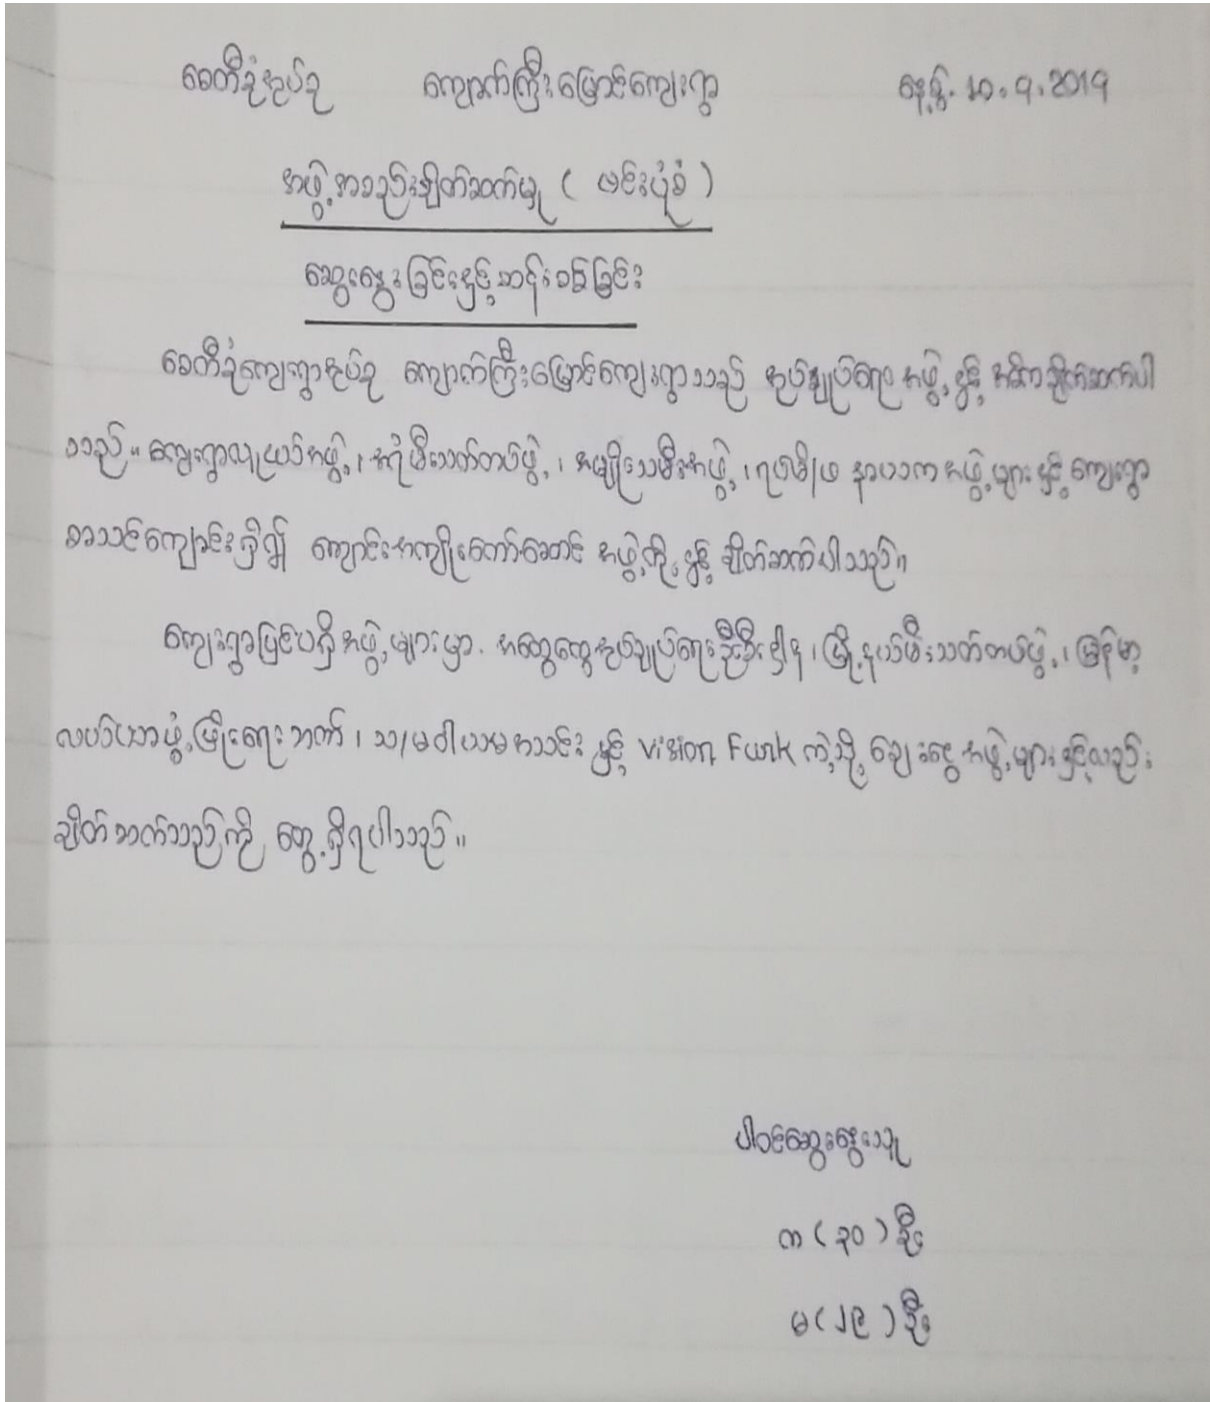 စေတီခုံအုပ်စု ကျောက်ကြီးမြောင်ကျေးရွာ နေ့စွဲ. 10.9.2019
အဖွဲ့အစည်းချိတ်ဆက်မှု ( ဗင်းပုံစံ )
ဆွေးနွေးခြင်းနှင့်ဆန်းစစ်ခြင်း
စေတီခုံကျေးရွာအုပ်စု ကျောက်ကြီးမြောင်ကျေးရွာသည် အုပ်ချုပ်ရေး အဖွဲ့နှင့် အဓိကချိတ်ဆက်ပါ
သည်။ ကျေးရွာလူငယ်အဖွဲ့၊ အရံမီးသတ်တပ်ဖွဲ့၊ အမျိုးသမီးအဖွဲ့၊ ရပ်မိ/ဖ နာယကအဖွဲ့များနှင့် ကျေးရွာ
စာသင်ကျောင်းရှိ၍ ကျောင်းအကျိုးတော်ဆောင် အဖွဲ့တို့နှင့် ချိတ်ဆက်ပါသည်။
ကျေးရွာပြင်ပရှိအဖွဲ့များမှာ. အထွေထွေအုပ်ချုပ်ရေးဦးစီးဌာန၊ မြို့နယ်မီးသတ်တပ်ဖွဲ့၊ မြန်မာ့
လယ်ယာဖွံ့ဖြိုးရေးဘဏ်၊ သ/မဝါယမအသင်း နှင့် Vision Funk ကဲ့သို့ ချေးငွေအဖွဲ့များနှင့်လည်း
ချိတ်ဆက်သည်ကို တွေ့ရှိရပါသည်။
ပါဝင်ဆွေးနွေးသူ
က ( ၃၀ ) ဦး
မ ( ၂၉ ) ဦး